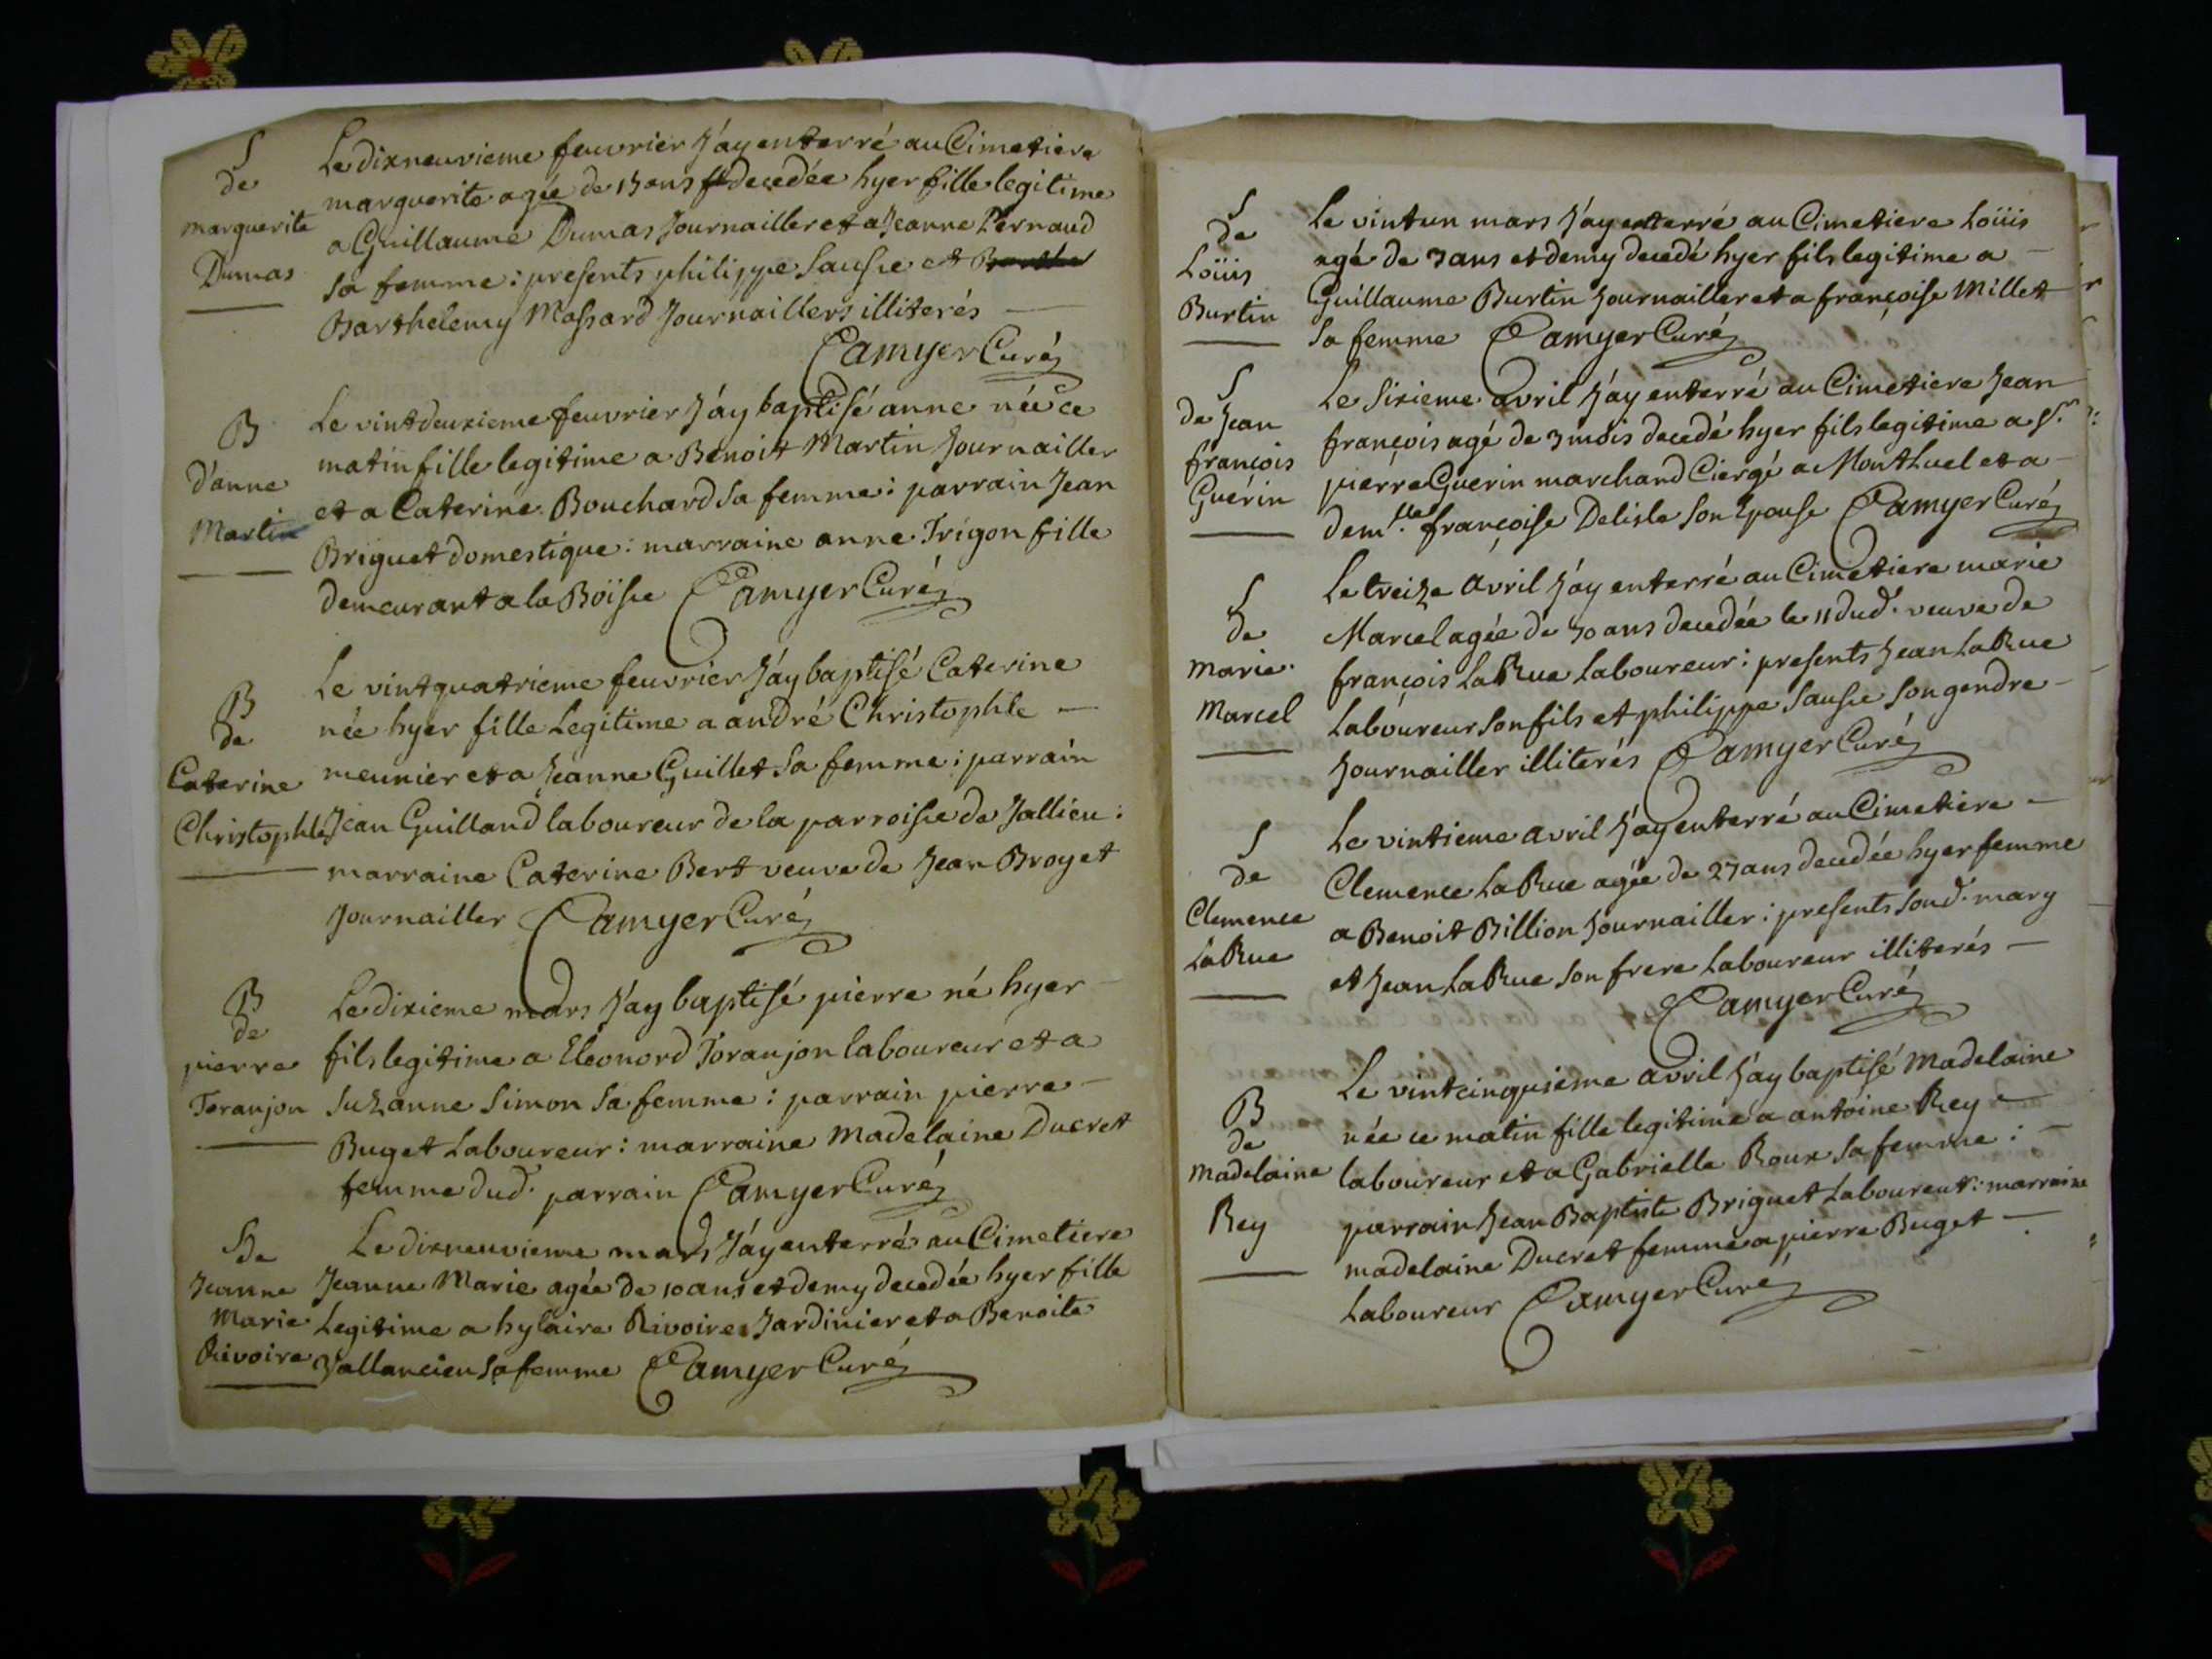 S
de
marguerite
Dumas
Le dixneuvieme feuvrier j'ay enterré au Cimetiere
marguerite agée de 13 ans decedée hyer fille legitime
a Guillaume Dumas Journailler et a Jeanne Pernaud
sa femme : presents philippe Sausse et
Barthelemy Massard Journaillers illiterés —
Camyer Curé
B
d'anne
Martin
Le vintdeuxieme feuvrier j'ay baptisé anne née ce
matin fille legitime a Benoit Martin Journailler
et a Caterine Bouchard sa femme : parrain Jean
Briguet domestique : marraine anne Trigon fille
demeurant a la Boïsse Camyer Curé
B
de
Caterine
Christophle
Le vintquatrieme feuvrier j'ay baptisé Caterine
née hyer fille Legitime a andré Christophle —
meunier et a Jeanne Guillet sa femme : parrain
Jean Guilland laboureur de la parroisse de Jallieu :
marraine Caterine Bert veuve de Jean Broyet
Journailler Camyer Curé
B
de
pierre
Toranjon
Le dixieme mars j'ay baptisé pierre né hyer
fils legitime a Eleonord Toranjon laboureur et a
Suzanne Simon sa femme : parrain pierre —
Buget Laboureur : marraine Madelaine Ducret
femme dud. parrain Camyer Curé
S de
Jeanne
Marie
Rivoire
Le dixneuvieme mars j'ay enterré au Cimetiere
Jeanne Marie agée de 10 ans et demy decedée hyer fille
Legitime a hylaire Rivoire Jardinier et a Benoite
Vallancien sa femme Camyer Curé
S
de
Loüis
Burtin
Le vintun mars j'ay enterré au Cimetiere Loüis
agé de 3 ans et demy decedé hyer fils legitime a —
Guillaume Burtin Journailler et a françoise Millet
sa femme Camyer Curé
S
de Jean
françois
Guérin
Le sixieme avril j'ay enterré au Cimetiere Jean
françois agé de 3 mois decedé hyer fils legitime a Sr.
pierre Guerin marchand Ciergé a Montluel et a —
demlle. françoise Delisle son Epouse Camyer Curé
S
de
Marie
Marcel
Le treize avril j'ay enterré au Cimetiere marie
Marcel agée de 70 ans decedée le 11 dud. veuve de
françois LaRue Laboureur : presents Jean LaRue
Laboureur son fils et philippe Sausse son gendre —
Journailler illiterés Camyer Curé
S
de
Clemence
LaRue
Le vintieme avril j'ay enterré au Cimetiere —
Clemence LaRue agée de 27 ans decedée hyer femme
a Benoit Billion Journailler : presents sond. mary
et Jean LaRue son frere Laboureur illiterés —
Camyer Curé
B
de
Madelaine
Rey
Le vintcinquieme avril j'ay baptisé Madelaine
née ce matin fille legitime a antoine Rey —
laboureur et a Gabrielle Roux sa femme : —
parrain Jean Baptiste Briguet Laboureur : marraine
madelaine Ducret femme a pierre Buget —
Laboureur Camyer Curé